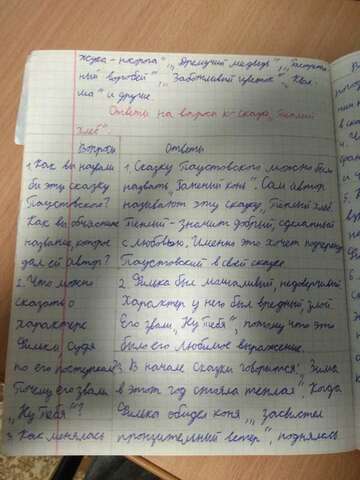 жука-носорога", "Дремучий медведь", "Растрёпан-
ный воробей", "Заботливый цветок", "Ква-
ша" и другие.
Ответы на вопросы к сказке "Теплый
хлеб".
Вопросы Ответы
1. Как вы назвали 1. Сказку Паустовского можно было
бы эту сказку назвать "Раненый конь". Сам автор
Паустовского? называют эту сказку "Теплый хлеб.
Как вы объясняете Теплый - значит добрый, сделанный
название, которое с любовью. Именно это хочет подчеркнуть
дал ей автор? Паустовский в своей сказке.
2. Что можно 2. Филька был молчаливый, недоверчивый.
сказать о Характер у него был вредный, злой.
характере Его звали "Ну Тебя", потому что это
Фильки судя было его любимое выражение.
по его поступкам? 3. В начале сказки говориться: "Зима
Почему его звали в этот год стояла теплая". Когда
"Ну Тебя"? Филька обидел коня "засвистел
3. Как менялась пронзительный ветер", поднялась